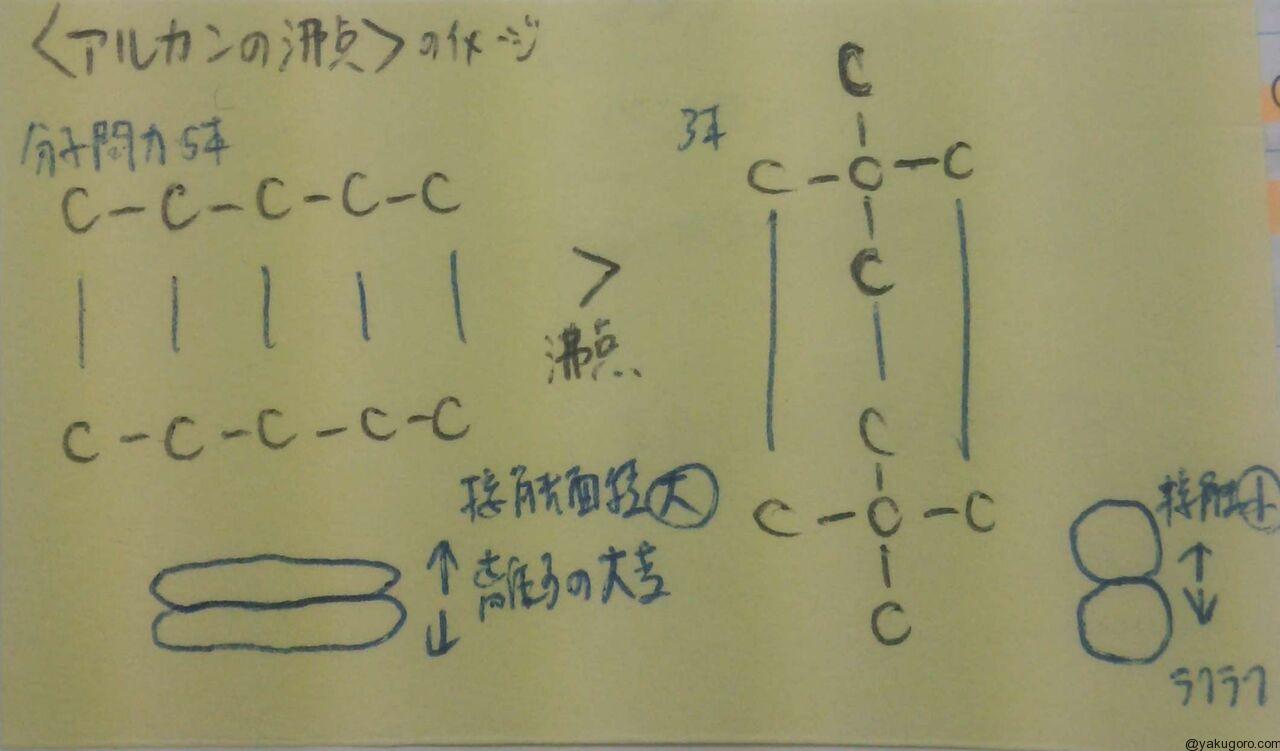 ＜アルカンの沸点＞のイメージ
分子間力5本
C-C-C-C-C
C-C-C-C-C
＞
沸点
3本
C
C-C-C
C
C
C-C-C
C
接触面積㊅
離すの大変
接触㊉
ラクラク
@yakugoro.com